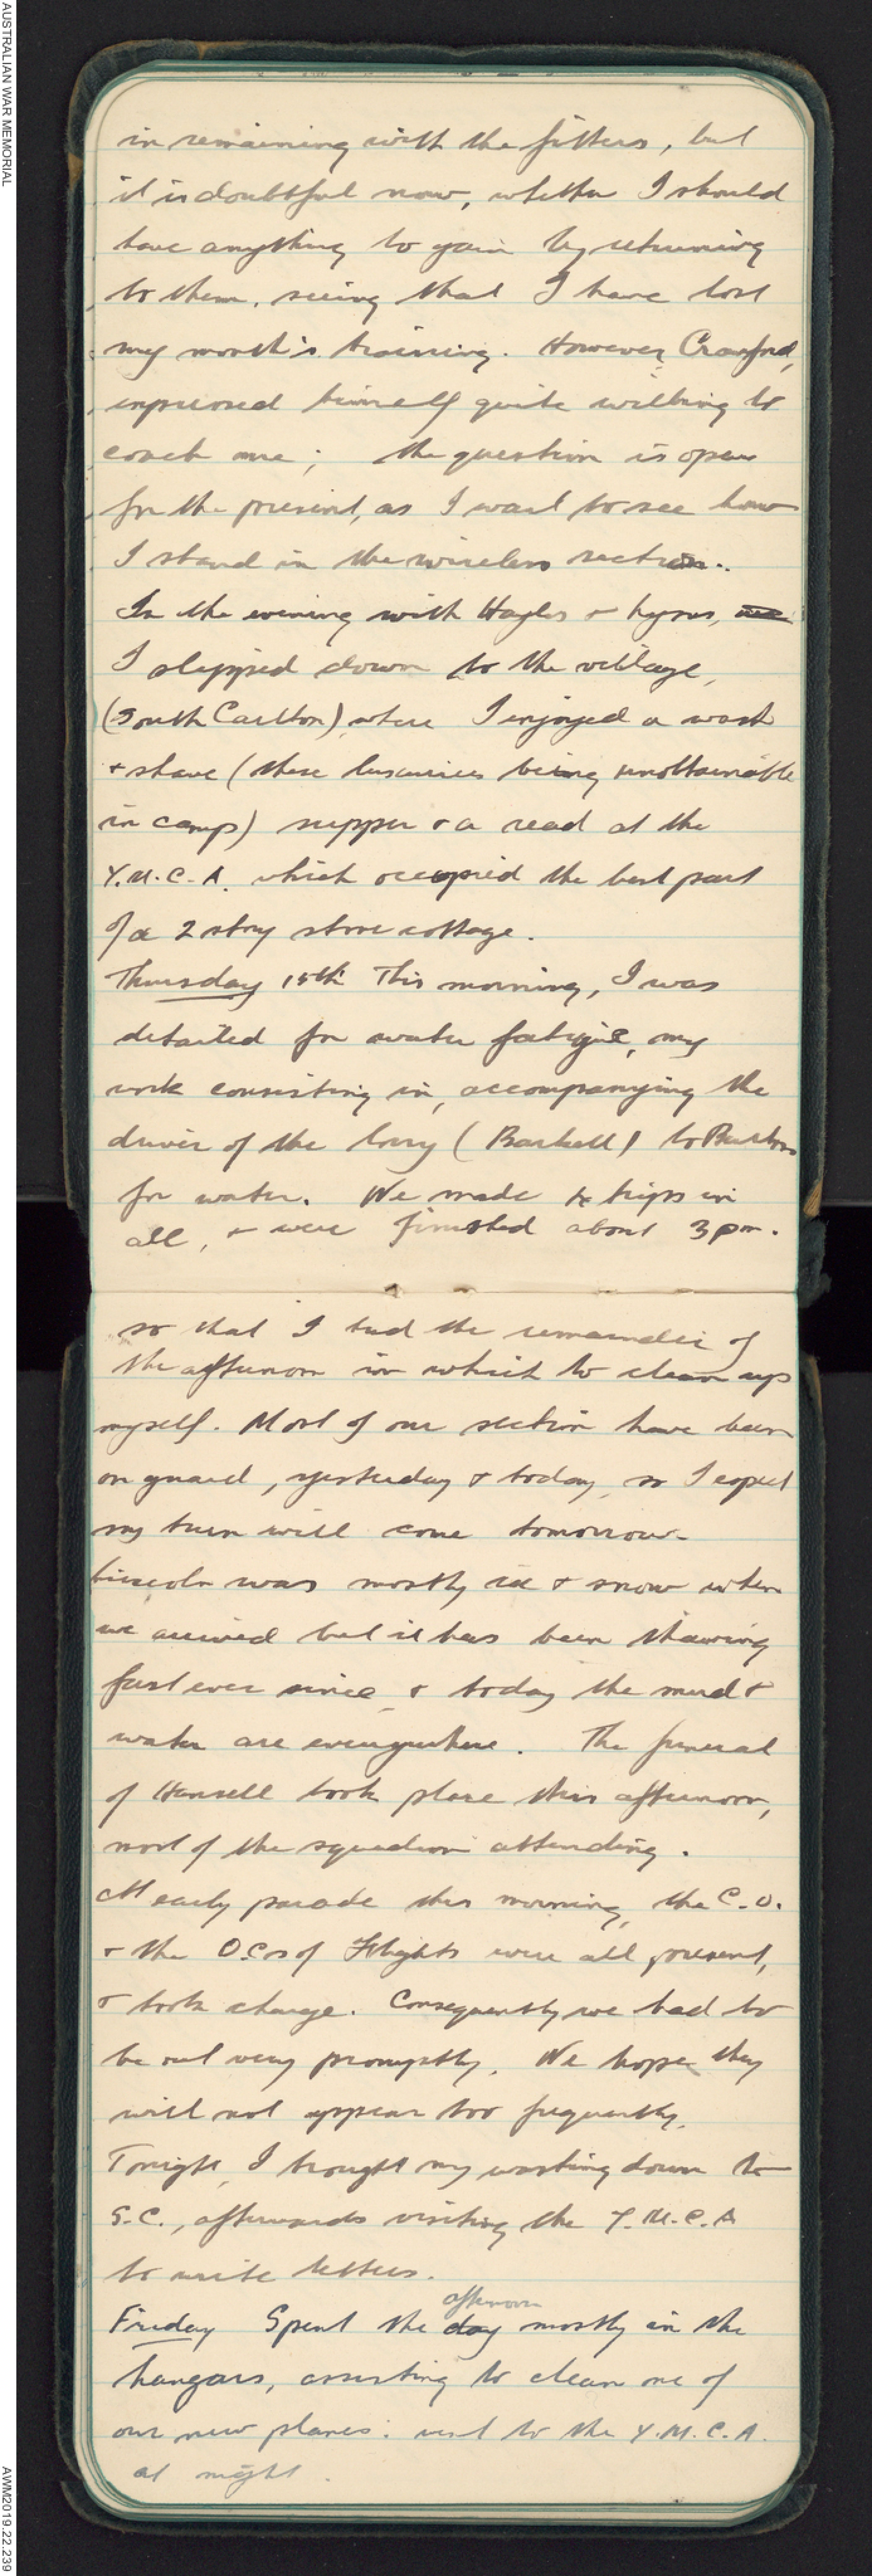 AUSTRALIAN WAR MEMORIAL
in remaining with the fitters, but
it is doubtful now, whether I should
have anything to gain by returning
to them, seeing that I have lost
my month's training. However, Crawford,
expressed himself quite willing to
coach me; the question is open
for the present, as I want to see how
I stand in the wireless section.
In the evening with Hayles &
I slipped down to the village,
(South Carlton) where I enjoyed a wash
& shave (these luxuries being unobtainable
in camp) supper & a read at the
Y.M.C.A. which occupied the best part
of a 2 story stone cottage.
Thursday 15th This morning, I was
detailed for water fatigue, my
work consisting in, accompanying the
driver of the lorry (Barkell) to Burton
for water. We made trips in
all, & were finished about 3 pm.
so that I had the remainder of
the afternoon in which to clean up
myself. Most of our section have been
on guard, yesterday & today, so I expect
my turn will come tomorrow.
Lincoln was mostly ice & snow when
we arrived but it has been thawing
fast ever since, & today the mud &
water are everywhere. The funeral
of Hansell took place this afternoon,
most of the squadron attending.
At early parade this morning, the C.O.
& the O.C.s of Flights were all present,
& took charge. Consequently we had to
be out very promptly. We hope they
will not appear too frequently.
Tonight, I brought my washing down to
S.C., afterwards visiting the Y.M.C.A
to write letters.
afternoon
Friday Spent the day mostly in the
hangars, assisting to clean one of
our new planes: went to the Y.M.C.A.
at night.
AWM2019.22.239